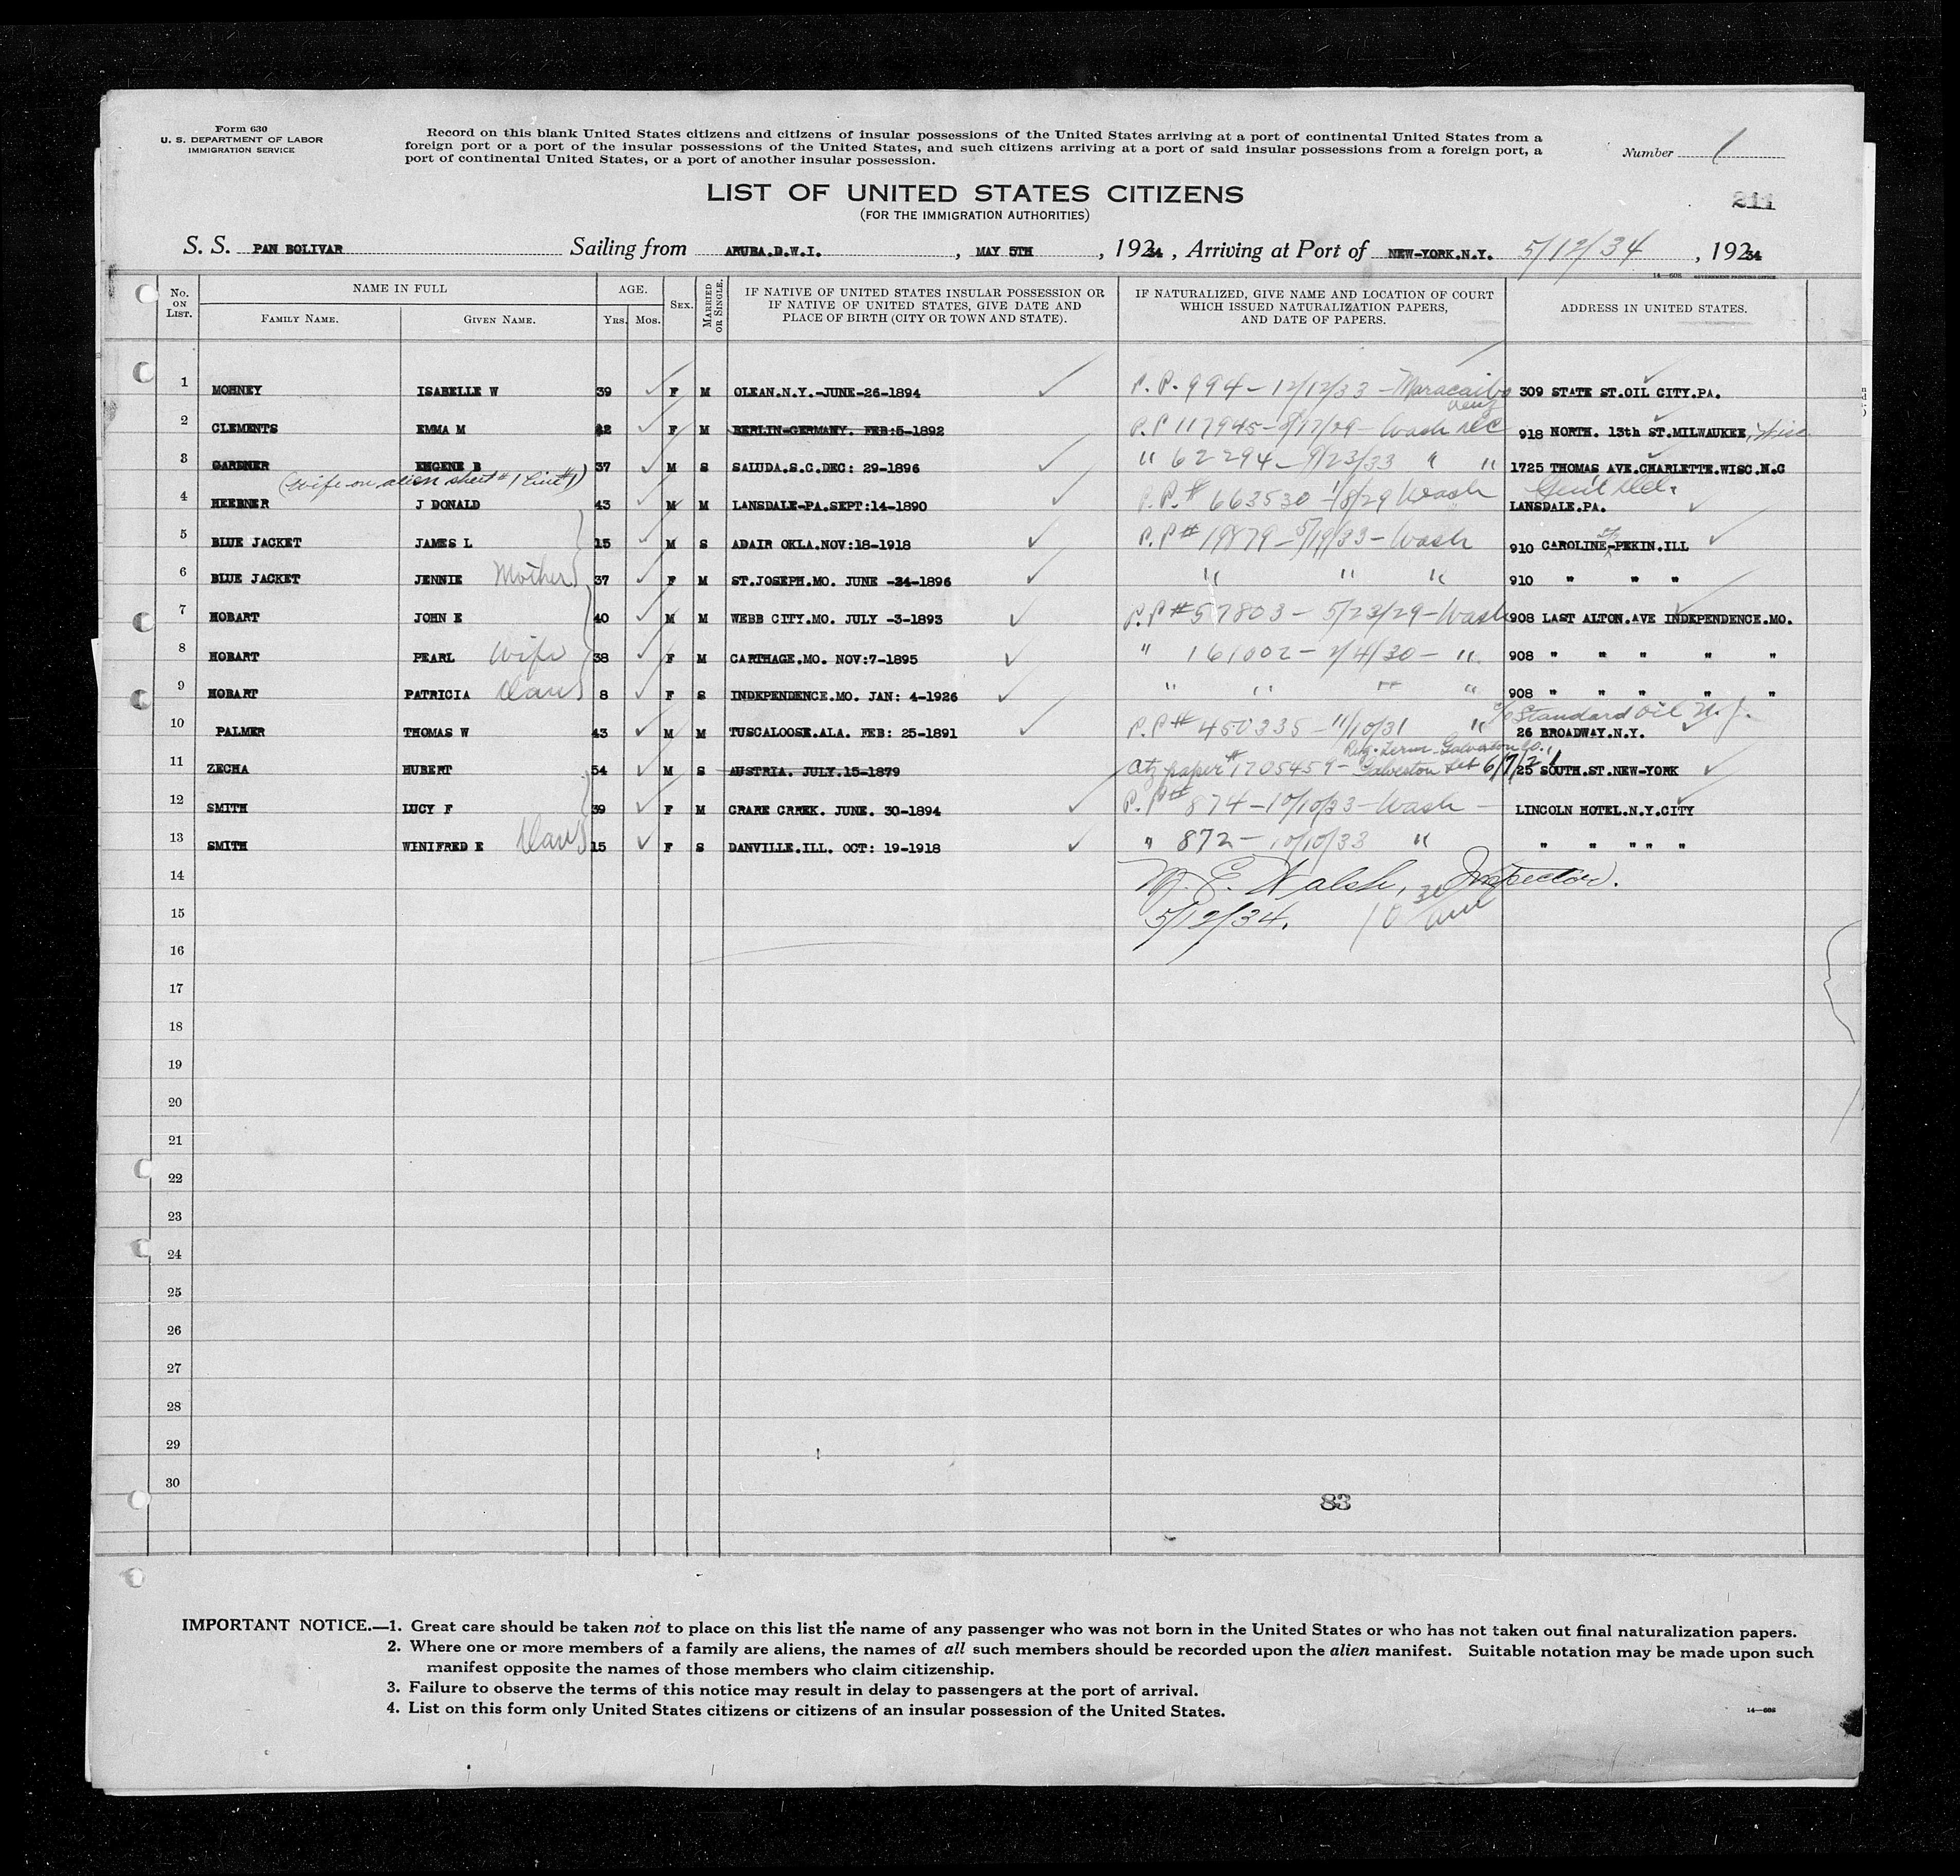 Form 630
U. S. DEPARTMENT OF LABOR
IMMIGRATION SERVICE
Record on this blank United States citizens and citizens of insular possessions of the United States arriving at a port of continental United States from a
foreign port or a port of the insular possessions of the United States, and such citizens arriving at a port of said insular possessions from a foreign port, a
port of continental United States, or a port of another insular possession.
Number 1
211
LIST OF UNITED STATES CITIZENS
(FOR THE IMMIGRATION AUTHORITIES)
S. S. PAN BOLIVAR Sailing from ARUBA.D.W.I. , MAY 5TH , 19234 , Arriving at Port of NEW-YORK.N.Y. 5/12/34 , 19234
14—608 GOVERNMENT PRINTING OFFICE
No. ON LIST. NAME IN FULL AGE. SEX. MARRIED OR SINGLE. IF NATIVE OF UNITED STATES INSULAR POSSESSION OR IF NATIVE OF UNITED STATES, GIVE DATE AND PLACE OF BIRTH (CITY OR TOWN AND STATE). IF NATURALIZED, GIVE NAME AND LOCATION OF COURT WHICH ISSUED NATURALIZATION PAPERS, AND DATE OF PAPERS. ADDRESS IN UNITED STATES.
FAMILY NAME. GIVEN NAME. YRS. MOS.
1 MOHNEY ISABELLE W 39 F M OLEAN.N.Y.-JUNE-26-1894 P. P. 994 - 12/12/33 - Maracaibo Venz 309 STATE ST.OIL CITY.PA.
2 CLEMENTS EMMA M 42 F M BERLIN-GERMANY. FEB:5-1892 P.P 117945 - 8/17/29 - Wash DC 918 NORTH. 13th ST.MILWAUKEE, Wisc
3 GARDNER EUGENE B 37 M S SALUDA.S.C.DEC: 29-1896 " 62294 - 9/23/33 " " 1725 THOMAS AVE.CHARLETTE.WISC.N.C
(Wife on alien sheet #1 line #1)
4 HEEBNER J DONALD 43 M M LANSDALE-PA.SEPT:14-1890 P.P.# 663530 - 1/8/29 Wash Gen'l Del. LANSDALE.PA.
5 BLUE JACKET JAMES L 15 M S ADAIR OKLA.NOV:18-1918 P.P# 19879 - 5/19/33 - Wash 910 CAROLINE-PEKIN.ILL
6 BLUE JACKET JENNIE Mother 37 F M ST.JOSEPH.MO. JUNE -24-1896 " " " 910 " " "
7 HOBART JOHN E 40 M M WEBB CITY.MO. JULY -3-1893 P.P# 57803 - 5/23/29 - Wash 908 LAST ALTON.AVE INDEPENDENCE.MO.
8 HOBART PEARL Wife 38 F M CARTHAGE.MO. NOV:7-1895 " 161002 - 2/4/30 - " 908 " " " " "
9 HOBART PATRICIA Dau 8 F S INDEPENDENCE.MO. JAN: 4-1926 " " " " 908 " " " " "
10 PALMER THOMAS W 43 M M TUSCALOOSE.ALA. FEB: 25-1891 P.P# 450335 - 11/10/31 " c/o Standard Oil N.J. 26 BROADWAY.N.Y.
11 ZECHA HUBERT 54 M S AUSTRIA. JULY.15-1879 Ctz paper # 1705459 - Reg. Term Galveston Co., Galveston 6/7/21 25 SOUTH.ST.NEW-YORK
12 SMITH LUCY F 39 F M CRARE CRREK. JUNE. 30-1894 P.P# 874 - 10/10/33 - Wash - LINCOLN HOTEL.N.Y.CITY
13 SMITH WINIFRED E Dau 15 F S DANVILLE.ILL. OCT: 19-1918 " 872 - 10/10/33 " " " " " "
14 W. E. Walsh, Inspector.
15 5/12/34. 10 30 am
16
17
18
19
20
21
22
23
24
25
26
27
28
29
30
83
IMPORTANT NOTICE.—1. Great care should be taken not to place on this list the name of any passenger who was not born in the United States or who has not taken out final naturalization papers.
2. Where one or more members of a family are aliens, the names of all such members should be recorded upon the alien manifest. Suitable notation may be made upon such
manifest opposite the names of those members who claim citizenship.
3. Failure to observe the terms of this notice may result in delay to passengers at the port of arrival.
4. List on this form only United States citizens or citizens of an insular possession of the United States.
14—608